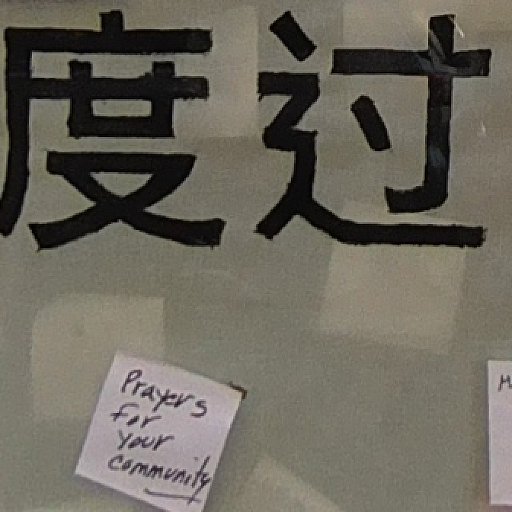 度过
Prayers
for
your
community